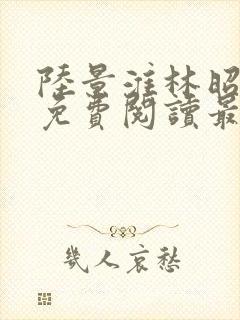 陸景淮林昭
免費閱讀最
幾人哀愁